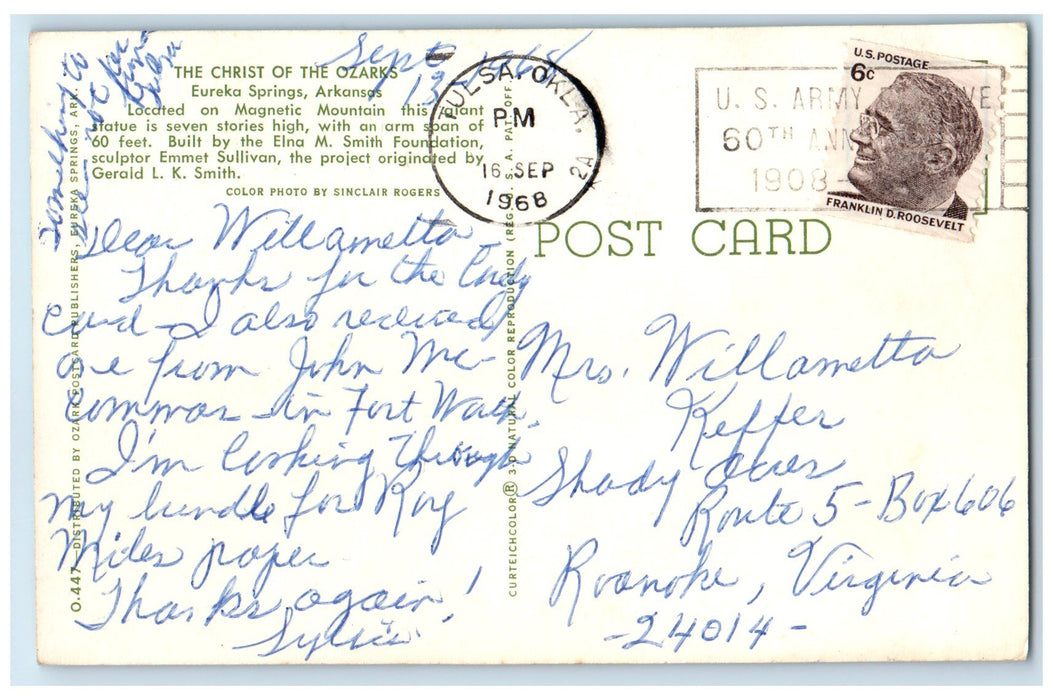 Sept 13, 1968
THE CHRIST OF THE OZARKS
Eureka Springs, Arkansas
Located on Magnetic Mountain this giant
statue is seven stories high, with an arm span of
60 feet. Built by the Elna M. Smith Foundation,
sculptor Emmet Sullivan, the project originated by
Gerald L. K. Smith.
COLOR PHOTO BY SINCLAIR ROGERS
Something to
Dear Willametta -
Thanks for the
Card - I also received
one from John Mc-
Commas - in Fort Wath.
I'm looking Through
my bundle for Roy
Miles paper
Thanks again!
Sylvia
O.447 DISTRIBUTED BY OZARK POSTCARD PUBLISHERS, EUREKA SPRINGS, ARK.
CURTEICHCOLOR® 3-D NATURAL COLOR REPRODUCTION (REG. U.S.A. PAT. OFF.)
TULSA, OKLA.
PM
16 SEP
1968
2A
U. S. ARMY
60TH ANN
1908-
U.S. POSTAGE
6c
FRANKLIN D. ROOSEVELT
POST CARD
Mrs. Willametta
Keffer
Shady Acres
Route 5 - Box 606
Roanoke, Virginia
- 24014 -